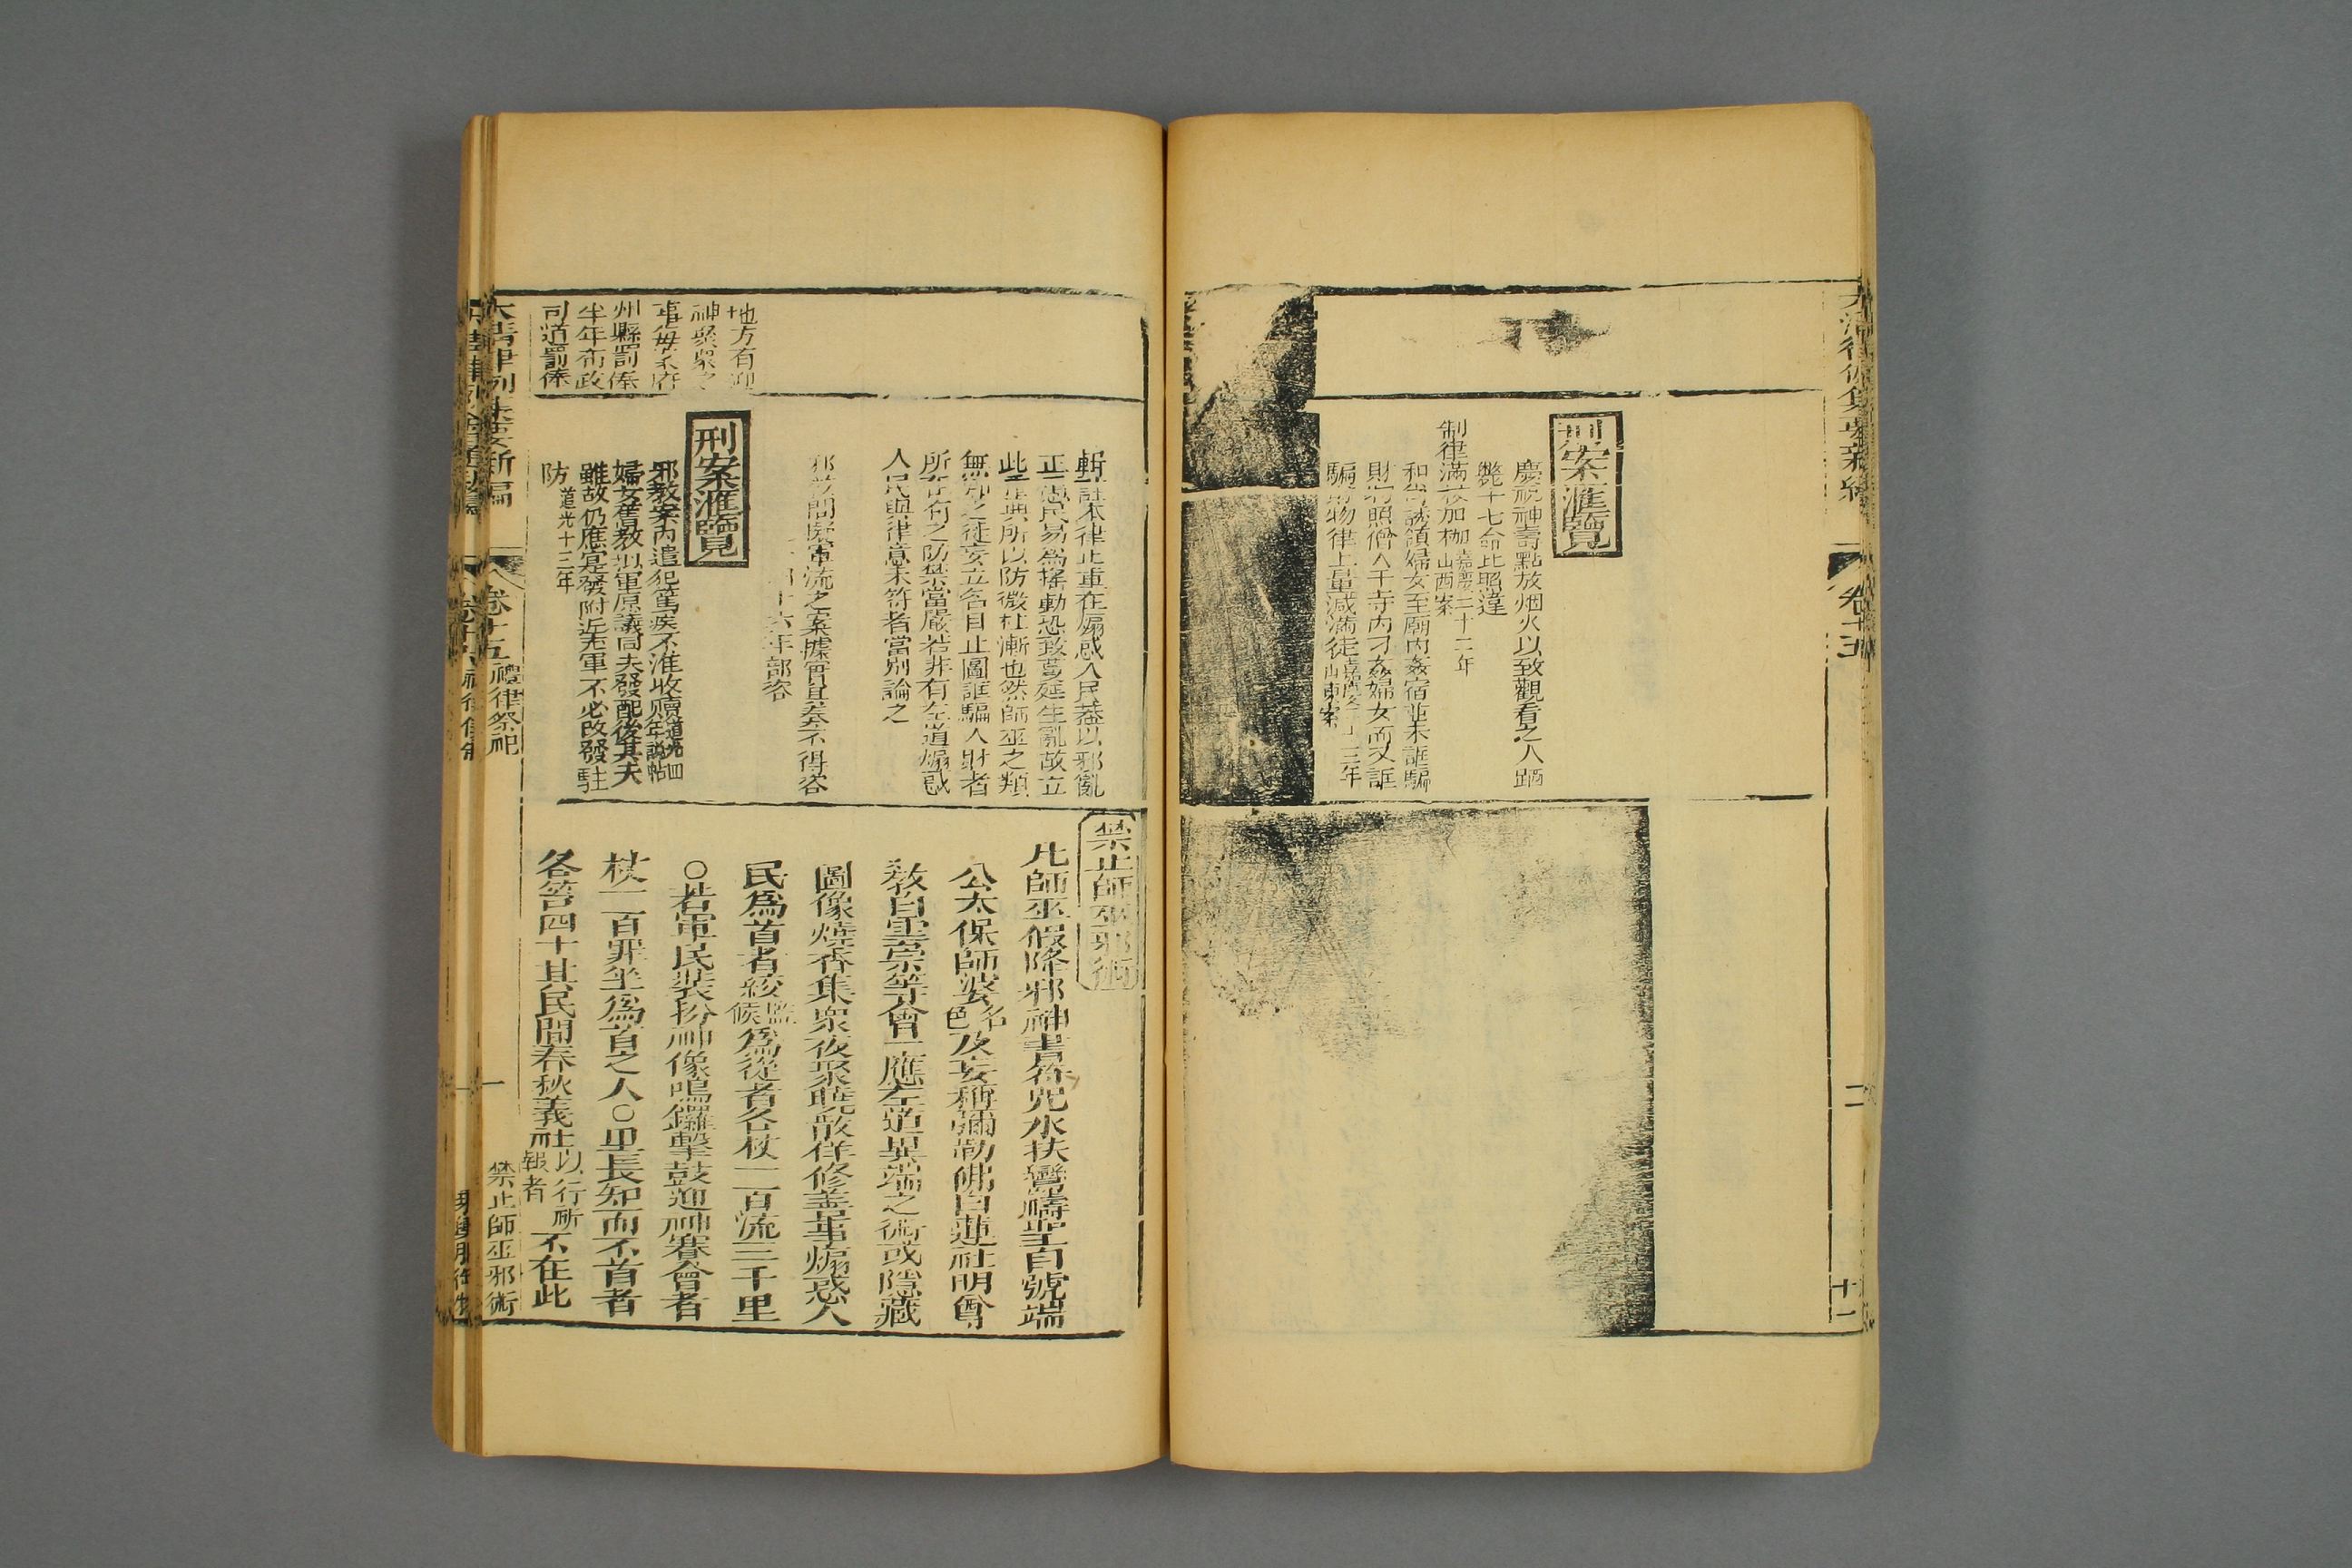 刑案滙覽
慶祝神壽點放烟火以致觀看之人踊
斃十七命比照違
制律滿杖加枷嘉慶二十二年山西案
和尚誘領婦女至廟內姦宿並未誆騙
財物照僧人于寺內刁姦婦女而又誆
騙財物律上量減滿徒
卷十五
十一
地方有迎
神聚衆之
事每案府
州縣罰俸
半年布政
司道罰俸
輯註本律止重在煽惑人民蓋以邪亂
正愚民易爲搖動恐致蔓延生亂故立
此重典所以防微杜漸也然師巫之類
無耶之徒妄立名目止圖誆騙人財者
所在有之防禁當嚴若非有左道煽惑
人民與律意未符者當別論之
邪教問擬軍流之案據實具奏不得咨
十六年部咨
刑案滙覽
邪教案內遣犯篤疾不准收贖道光四年說帖
婦女習教擬軍原議同夫發配後其夫
雖故仍應當發附近充軍不必改發駐
防道光十三年
禁止師巫邪術
凡師巫假降邪神書符咒水扶鸞禱聖自號端
公太保師婆名色及妄稱彌勒佛白蓮社明尊
教白雲宗等會一應左道異端之術或隱藏
圖像燒香集衆夜聚曉散佯修善事煽惑人
民爲首者絞監候爲從者各杖一百流三千里
○若軍民裝扮神像鳴鑼擊鼓迎神賽會者
杖一百罪坐爲首之人○里長知而不首者
各笞四十其民間春秋義社以行祈報者不在此
大清律例集要新編
卷十五
禮律祭祀
一
禁止師巫邪術